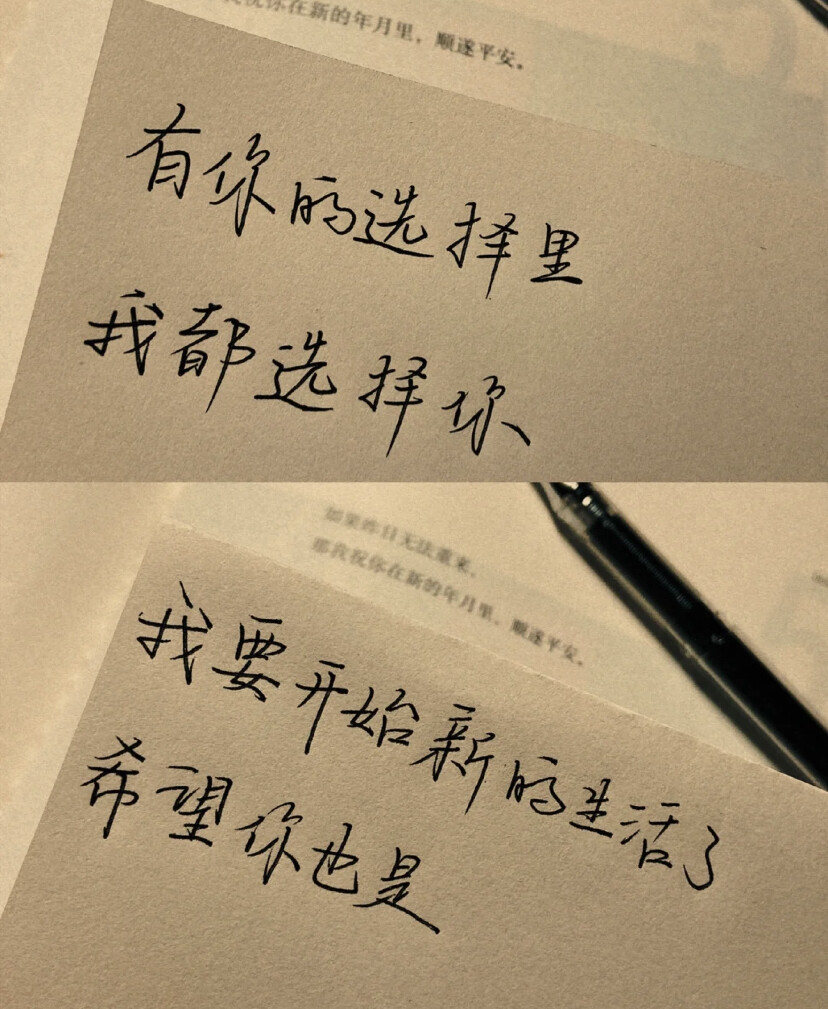 祝你在新的年月里，顺遂平安。
有你的选择里
我都选择你
如果昨日无法重来，
那我祝你在新的年月里，顺遂平安。
我要开始新的生活了
希望你也是